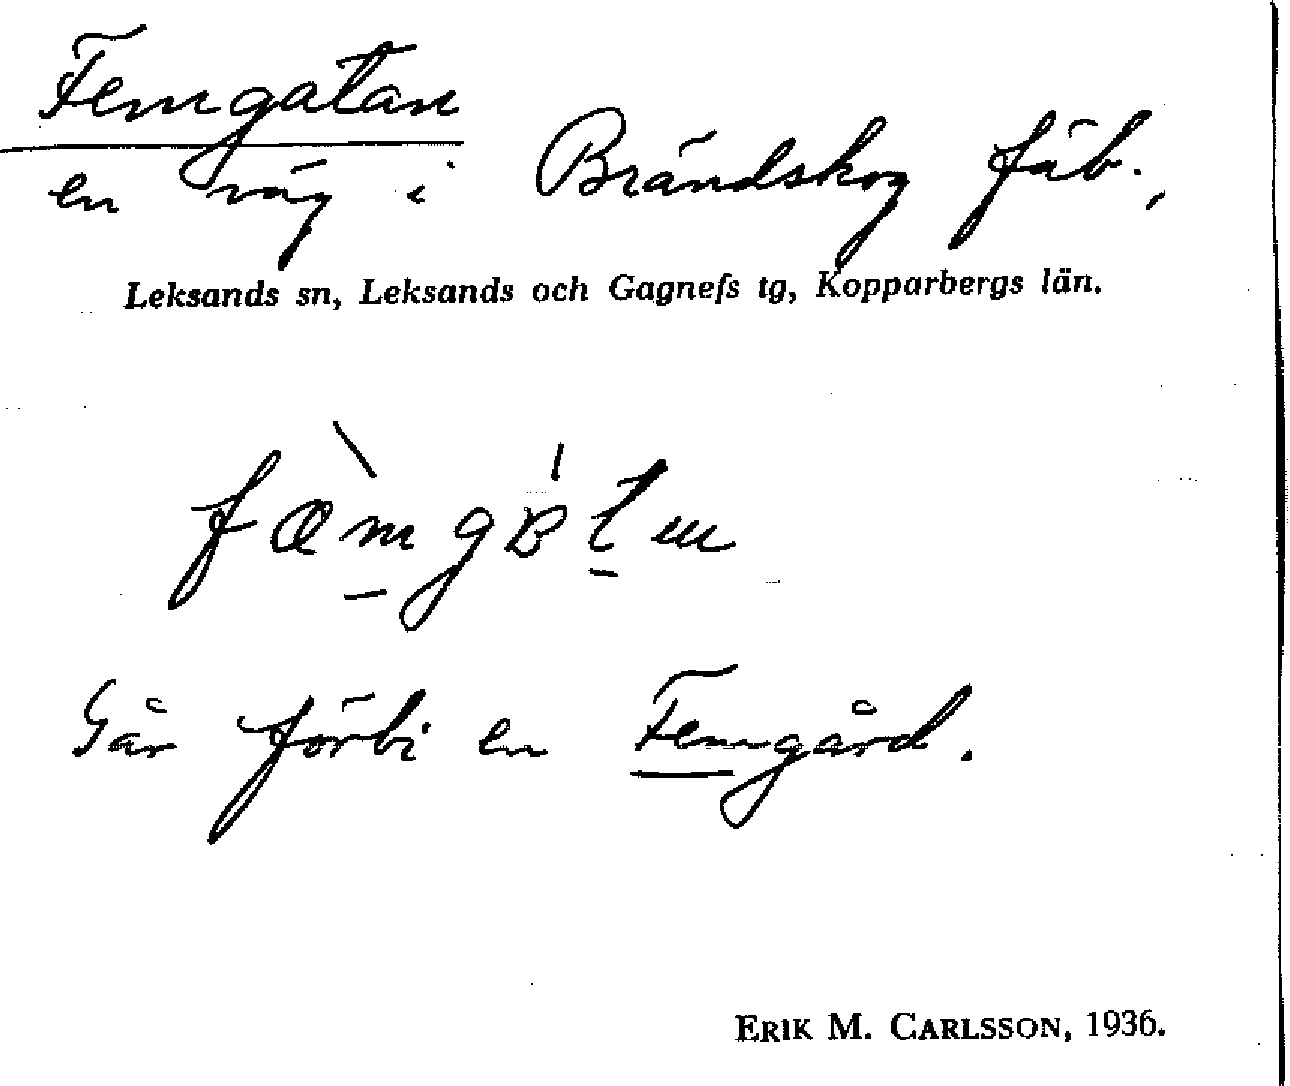 Femgatan
en väg i Brändskog fäb.,
Leksands sn, Leksands och Gagnefs tg, Kopparbergs län.
Går förbi en Femgård.
ERIK M. CARLSSON, 1936.